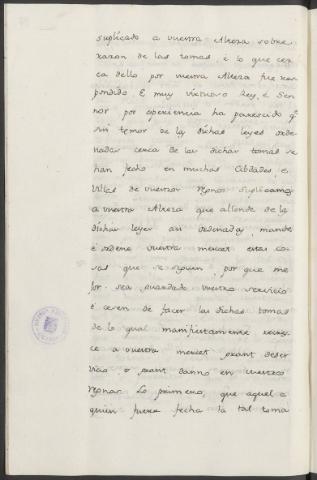 suplicado a vuestra Alteza sobre
razon de las tomas, e lo que cer
ca dello por vuestra Alteza fue res
pondido E muy virtuoso Rey, e Sen
nor por esperiencia ha parescido q.e
sin temor de las dichas leyes orde
nadas cerca de las dichas tomas se
han fecho en muchas Cibdades, e
villas de vuestros regnos suplicamos
a vuestra Alteza que allende de las
dichas leyes asi ordenadas, mande
e ordene vuestra merced estas co
sas que se siguen, por que me
jor sea guardado vuestro servicio
e cesen de facer las dichas tomas
de lo qual manifiestamente recres
ce a vuestra merced grant deser
vicio, e grant danno en vuestros
regnos. Lo primero, que aquel a
quien fuere fecha la tal toma